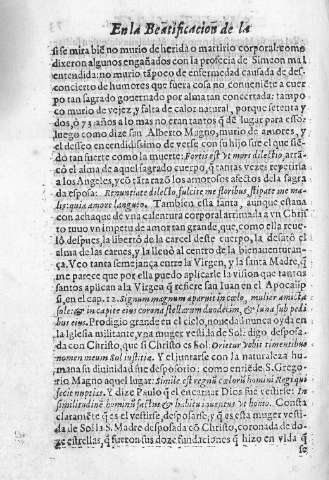 En la Beatificacion de la
si se mira biē no murio de herida o martirio corporal: como
dixeron algunos engañados con la profecia de Simeon mal
entendida: no murio tāpoco de enfermedad causada de des-
concierto de humores que fuera cosa no conueniēte a cuer
po tan sagrado gouernado por alma tan concertada: tampo
co murio de vejez, y falta de calor natural, porque setenta y
dos, o 73 años a lo mas no eran tantos q̄ dē lugar para esso:
luego como dize san Alberto Magno, murio de amores, y
el desseo encendidissimo de verse con su hijo fue el que siē-
do tan fuerte como la muerte: Fortis est vt mors dilectio, arrā-
cò el alma de aquel sagrado cuerpo, q̄ tantas vezes repetiria
a los Angeles, y cō tāta razō los amorosos afectos dela sagra
da esposa: Renuntiate dilecto, fulcite me floribus, stipate me ma-
lis: quia amore langueo. Tambien esta santa, aunque estaua
con achaque de vna calentura corporal arrimada a vn Chris
to tuuo vn impetu de amor tan grande, que, como ella reue-
lò despues, la libertò de la carcel deste cuerpo, la desatò el
alma de las carnes, y la lleuò al centro de la bienauenturan-
ça. Veo tanta semejança entre la Virgen, y la santa Madre, q̄
me parece que por ella puedo aplicarle la vision que tantos
santos aplican a la Virgen q̄ refiere san Iuan en el Apocalip
si, en el cap. 12. Signum magnum aparuit in cœlo, mulier amicta
sole: & in capite eius corona stellarum duodecim, & luna sub pedi
bus eius. Prodigio grande en el cielo, no se da nunca oyda en
la Iglesia militante, vna muger vestida de Sol: digo desposa-
da con Christo, que si Christo es Sol. Orietur vobis timentibus
nomen meum Sol iustitiæ. Y el juntarse con la naturaleza hu-
mana su diuinidad fue desposorio: como entiēde S. Grego-
rio Magno aquel lugar: Simile est regnū cælorū homini Regi qui
fecit nuptias. Y dize Paulo q̄ el encarnar Dios fue vestirse: In
similitudinē hominū factus & habitu inuentus vt homo. Consta
claramente q̄ es el vestirse, desposarse, y q̄ es esta muger vesti-
da de Sol la S. Madre desposada cō Christo, coronada de do-
ze estrellas, q̄ fueron sus doze fundaciones q̄ hizo en vida q̄
se